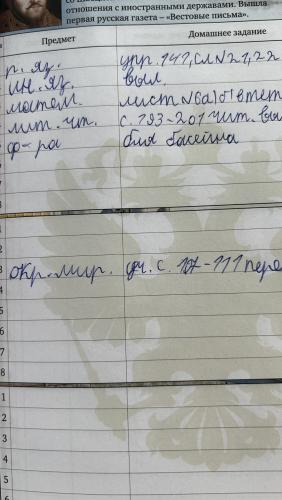 отношения с иностранными державами. Вышла
первая русская газета – «Вестовые письма».
Предмет Домашнее задание
р. яз. упр. 141, сл №21,22
ин. яз. выл.
матем. лист №6а)
лит. чт. с. 193-201 чит. вы
ф-ра без басейна
1
2
3 окр. мир. уч. с. 107-111 пере
4
5
6
7
8
1
2
3
4
5